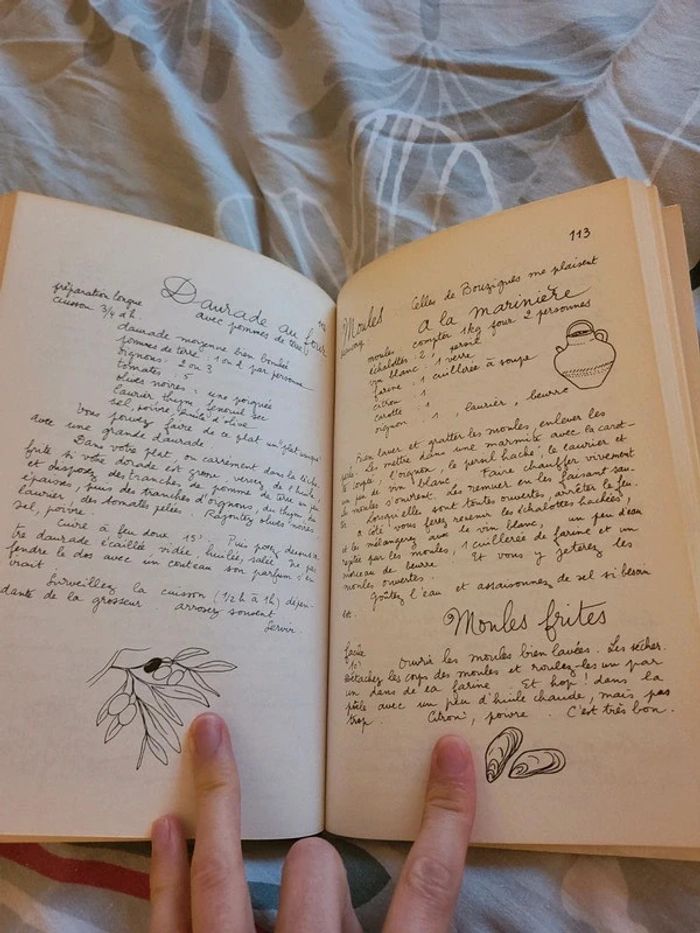 112
Daurade au four
avec pommes de terre
préparation longue
cuisson 3/4 d'h.
daurade moyenne bien boulée
pommes de terre : 1 ou 2 par personne
oignons : 2 ou 3
tomates : 5
olives noires : une poignée
laurier thym, fenouil sec
sel, poivre, huile d'olive
Vous pouvez faire de ce plat un "plat unique"
avec une grande daurade.
Dans votre plat, ou carrément dans la lèche-
frite si votre dorade est grosse, versez de l'huile,
et disposez des tranches de pomme de terre un peu
épaisses, puis des tranches d'oignons, du thym, du
laurier, des tomates pelées. Rajoutez olives noires
sel, poivre.
Cuire à feu doux 15'. Puis posez dessus vo-
tre daurade écaillée vidée, huilée, salée. Ne pas
fendre le dos avec un couteau son parfum s'en
irait.
Surveillez la cuisson (1/2 h à 1h) dépen-
dante de la grosseur. arrosez souvent
Servir.
113
Moules Celles de Bouzigues me plaisent
à la marinière
moules : compter 1kg pour 2 personnes
échalottes : 2, persil
vin blanc : 1 verre
farine : 1 cuillerée à soupe
citron : 1
carotte : 1
oignon : 1, laurier, beurre
Bien laver et gratter les moules, enlever les
Le mettre dans une marmite avec la carot-
te coupée, l'oignon, le persil haché, le laurier et
un peu de vin blanc. Faire chauffer vivement
les moules s'ouvrent. Les remuer en les faisant sau-
Lorsqu'elles sont toutes ouvertes, arrêter le feu.
à côté vous ferez revenir les échalottes hachées,
et les mélangerez avec le vin blanc, un peu d'eau
rejetée par les moules, 1 cuillerée de farine et un
morceau de beurre. Et vous y jeterez les
moules ouvertes.
Goûtez l'eau et assaisonnez de sel si besoin
est.
Moules frites
facile
10'
Ouvrir les moules bien lavées. Les sécher.
Détachez les corps des moules et roulez-les un par
un dans de la farine. Et hop! dans la
poêle avec un peu d'huile chaude, mais pas
trop. Citron, poivre. C'est très bon.